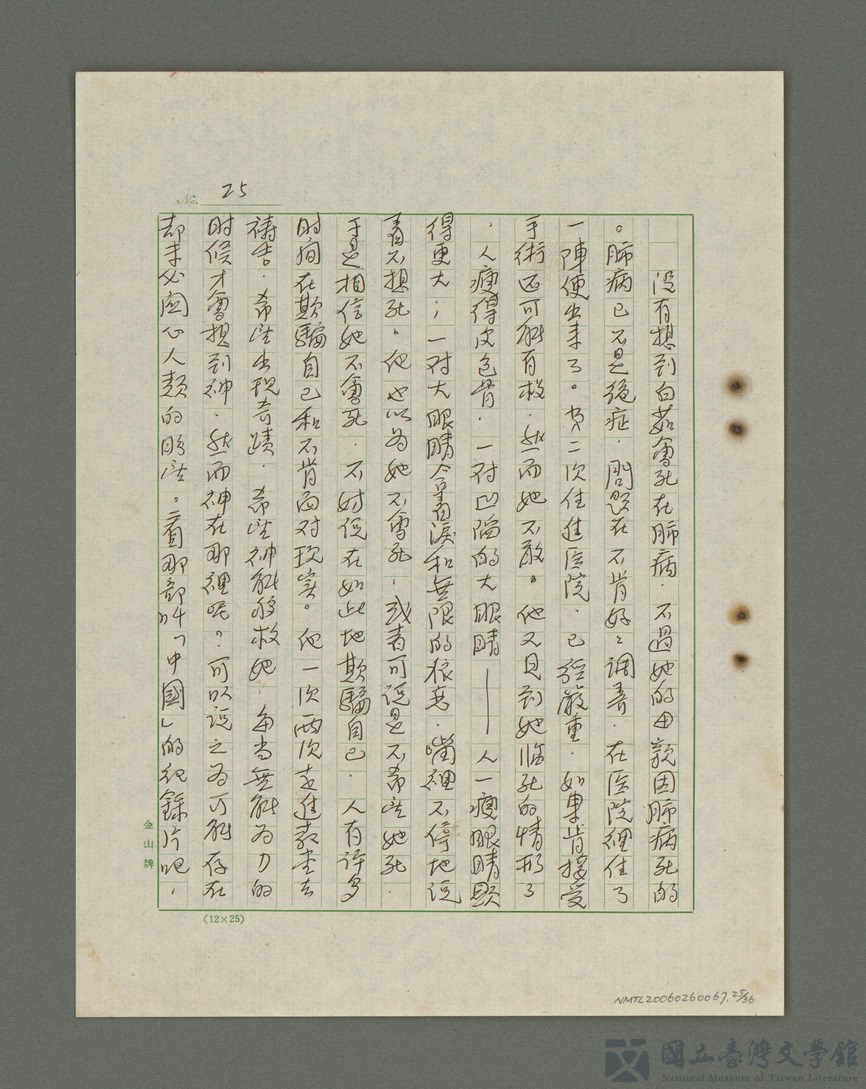 No. 25
没有想到白茹會死在肺病．不過她的母親因肺病死的
。肺病已不是絕症．問題在不肯好々调養．在医院裡住了
一陣便出来了。第二次住進医院．已経嚴重．如果肯接受
手術还可能有救．然而她不敢。他又見到她临死的情形了
．人瘦得皮包骨．一对凹陷的大眼睛——人一瘦眼睛顕
得更大；一对大眼睛含着淚和無限的
嘴裡不停地说
着不想死。他也以為她不會死，或者可说是不希望她死．
于是相信她不會死．不如说在如此地欺騙自己．人有许多
时间在欺騙自己和不肯面对现实。他一次兩次走進教堂去
祷告．希望出现奇蹟．希望神能够救她．每当無能為力的
时候才會想到神．然而神在那裡呢？可以说之為可能存在
却未必関心人類的
。看那部叫「中國」的纪錄片吧，
金山牌
(12×25)
NMTL20060260067. 25/36
國立臺灣文學館
National Museum of Taiwan Literature